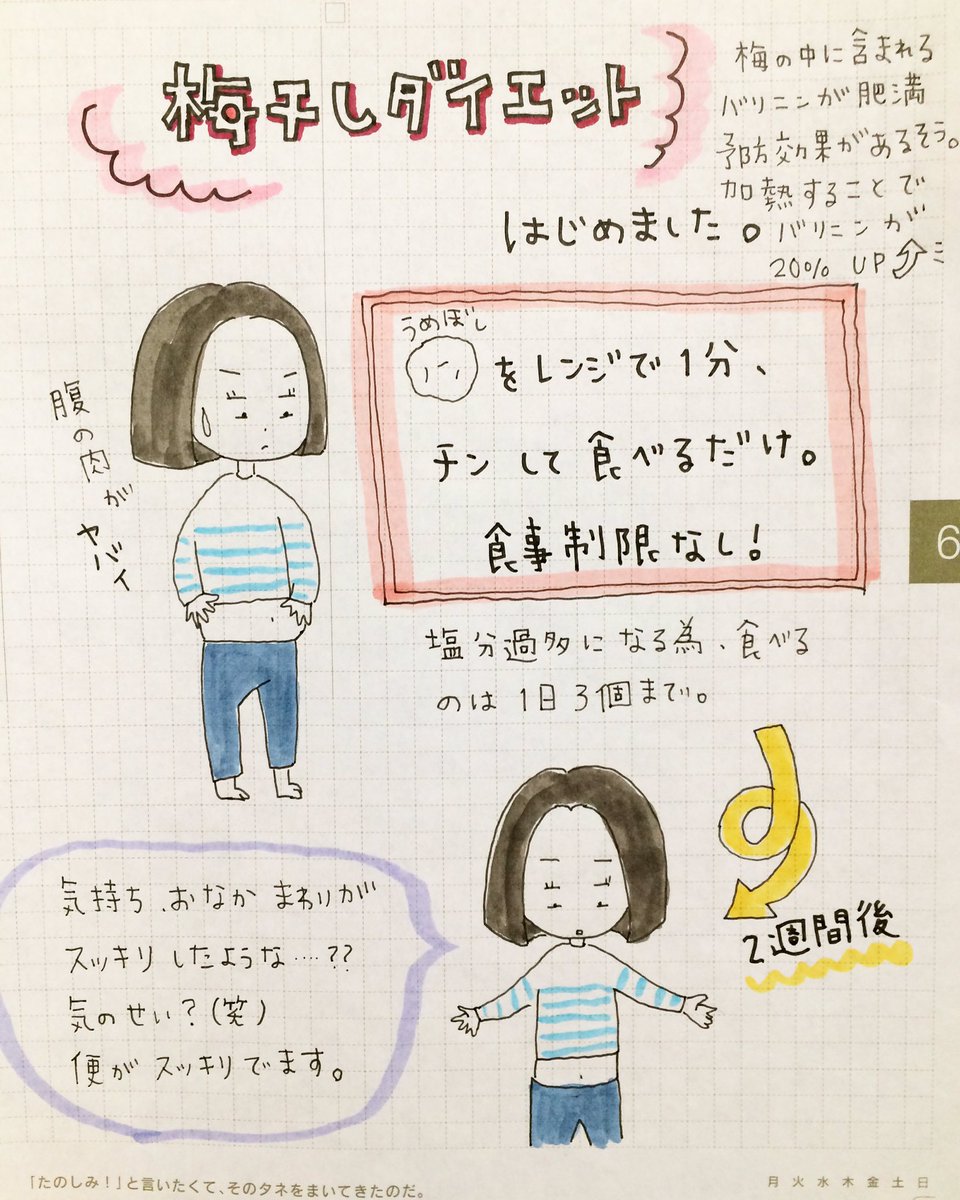 梅干しダイエット
はじめました。
梅の中に含まれる
バリニンが肥満
予防効果があるそう。
加熱することで
バリニンが
20% UP
うめぼし
をレンジで1分、
チンして食べるだけ。
食事制限なし!
腹の肉が
ヤバイ
塩分過多になる為、食べる
のは1日3個まで。
6
2週間後
気持ち、おなかまわりが
スッキリしたような…??
気のせい?(笑)
便がスッキリでます。
「たのしみ!」と言いたくて、そのタネをまいてきたのだ。
月火水木金土日